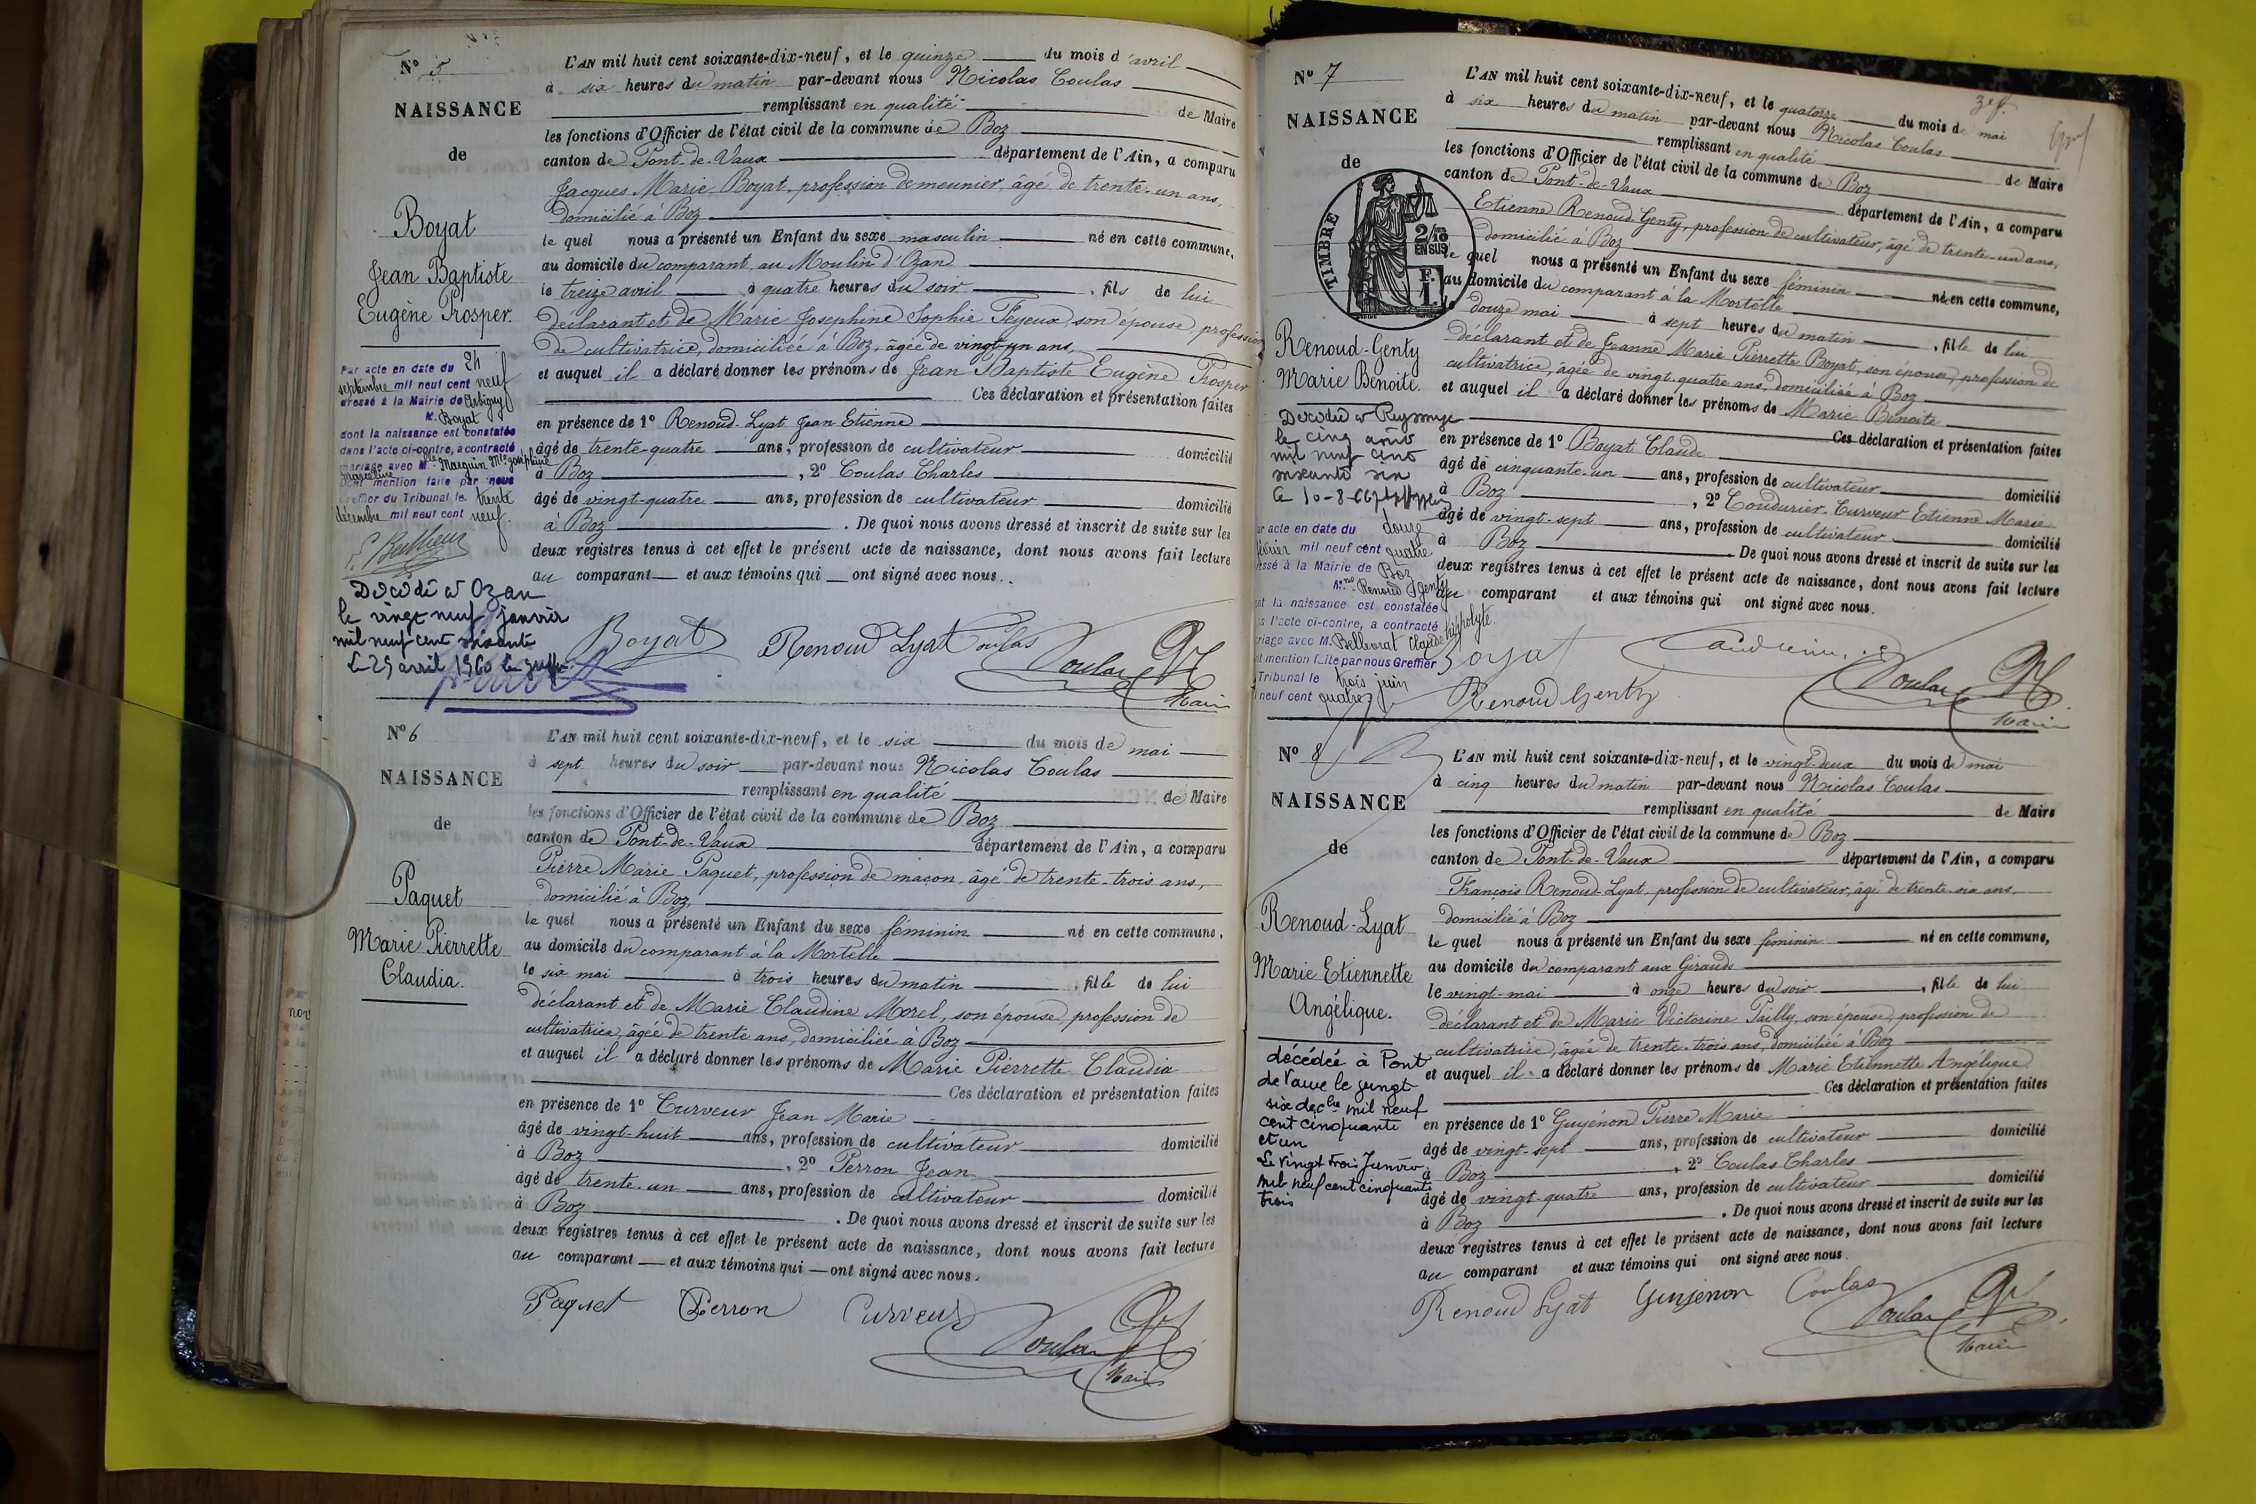 N° 5
NAISSANCE
de
Boyat
Jean Baptiste
Eugène Prosper.
Par acte en date du 24
septembre mil neuf cent neuf
dressé à la Mairie de Arbigny
M. Boyat
dont la naissance est constatée
dans l'acte ci-contre, a contracté
mariage avec Mlle Marguin Mie Joséphine
Marcelline
Dont mention faite par nous
Greffier du Tribunal le trente
décembre mil neuf cent neuf.
Décédé à Ozan
le vingt neuf janvier
mil neuf cent soixante
Le 29 avril 1960 le
L'AN mil huit cent soixante-dix-neuf, et le quinze du mois d'avril
à six heures du matin par-devant nous Nicolas Coulas
remplissant en qualité de Maire
les fonctions d'Officier de l'état civil de la commune de Boz
canton de Pont-de-Vaux département de l'Ain, a comparu
Jacques Marie Boyat, profession de meunier, âgé de trente-un ans,
domicilié à Boz
le quel nous a présenté un Enfant du sexe masculin né en cette commune,
au domicile du comparant, au Moulin d'Ozan
le treize avril à quatre heures du soir, fils de lui
déclarant et de Marie Josephine Sophie Feyeux, son épouse, profession
de cultivatrice, domiciliée à Boz, âgée de vingt-un ans,
et auquel il a déclaré donner les prénoms de Jean Baptiste Eugène Prosper
Ces déclaration et présentation faites
en présence de 1° Renoud-Lyat Jean Etienne
âgé de trente-quatre ans, profession de cultivateur domicilié
à Boz, 2° Coulas Charles
âgé de vingt-quatre ans, profession de cultivateur domicilié
à Boz. De quoi nous avons dressé et inscrit de suite sur les
deux registres tenus à cet effet le présent acte de naissance, dont nous avons fait lecture
au comparant et aux témoins qui ont signé avec nous.
Boyat Renoud Lyat Coulas Coulas
Maire
N° 6
NAISSANCE
de
Paquet
Marie Pierrette
Claudia.
L'AN mil huit cent soixante-dix-neuf, et le six du mois de mai
à sept heures du soir par-devant nous Nicolas Coulas
remplissant en qualité de Maire
les fonctions d'Officier de l'état civil de la commune de Boz
canton de Pont-de-Vaux département de l'Ain, a comparu
Pierre Marie Paquet, profession de maçon, âgé de trente-trois ans,
domicilié à Boz,
le quel nous a présenté un Enfant du sexe féminin né en cette commune,
au domicile du comparant à la Mortelle
le six mai à trois heures du matin, fille de lui
déclarant et de Marie Claudine Morel, son épouse, profession de
cultivatrice, âgée de trente ans, domiciliée à Boz
et auquel il a déclaré donner les prénoms de Marie Pierrette Claudia
Ces déclaration et présentation faites
en présence de 1° Curveur Jean Marie
âgé de vingt-huit ans, profession de cultivateur domicilié
à Boz, 2° Perron Jean
âgé de trente-un ans, profession de cultivateur domicilié
à Boz. De quoi nous avons dressé et inscrit de suite sur les
deux registres tenus à cet effet le présent acte de naissance, dont nous avons fait lecture
au comparant et aux témoins qui ont signé avec nous.
Paquet Perron Curveur Coulas
Maire
N° 7
NAISSANCE
de
TIMBRE
2/10
EN SUS
Renoud-Genty
Marie Benoite.
Décédée à Reyssouze
le cinq août
mil neuf cent
soixante six
Le 10-8-66
Par acte en date du douze
février mil neuf cent quatre
dressé à la Mairie de Boz
Mme Renoud Genty
dont la naissance est constatée
dans l'acte ci-contre, a contracté
mariage avec M. Bellevrat Claude Hippolyte.
Dont mention faite par nous Greffier
du Tribunal le trois juin
mil neuf cent quatre
3e f.
L'AN mil huit cent soixante-dix-neuf, et le quatorze du mois de mai
à six heures du matin par-devant nous Nicolas Coulas
remplissant en qualité de Maire
les fonctions d'Officier de l'état civil de la commune de Boz
canton de Pont-de-Vaux département de l'Ain, a comparu
Etienne Renoud-Genty, profession de cultivateur, âgé de trente-un ans,
domicilié à Boz
le quel nous a présenté un Enfant du sexe féminin né en cette commune,
au domicile du comparant à la Mortelle
le douze mai à sept heures du matin, fille de lui
déclarant et de Jeanne Marie Pierrette Boyat, son épouse, profession de
cultivatrice, âgée de vingt-quatre ans, domiciliée à Boz
et auquel il a déclaré donner les prénoms de Marie Benoite
Ces déclaration et présentation faites
en présence de 1° Boyat Claude
âgé de cinquante-un ans, profession de cultivateur domicilié
à Boz, 2° Coudurier-Curveur Etienne Marie
âgé de vingt-sept ans, profession de cultivateur domicilié
à Boz De quoi nous avons dressé et inscrit de suite sur les
deux registres tenus à cet effet le présent acte de naissance, dont nous avons fait lecture
au comparant et aux témoins qui ont signé avec nous.
Boyat
Renoud Genty Coulas
Maire
N° 8
NAISSANCE
de
Renoud-Lyat
Marie Etiennette
Angélique.
décédée à Pont
de Vaux le vingt
six decbre mil neuf
cent cinquante
et un
Le vingt trois Janvier
mil neuf cent cinquante
trois
L'AN mil huit cent soixante-dix-neuf, et le vingt-deux du mois de mai
à cinq heures du matin par-devant nous Nicolas Coulas
remplissant en qualité de Maire
les fonctions d'Officier de l'état civil de la commune de Boz
canton de Pont-de-Vaux département de l'Ain, a comparu
François Renoud-Lyat, profession de cultivateur, âgé de trente-six ans,
domicilié à Boz
le quel nous a présenté un Enfant du sexe féminin né en cette commune,
au domicile du comparant aux Girauds
le vingt-mai à onze heures du soir, fille de lui
déclarant et de Marie Victorine Pailly, son épouse, profession de
cultivatrice, âgée de trente-trois ans, domiciliée à Boz
et auquel il a déclaré donner les prénoms de Marie Etiennette Angélique
Ces déclaration et présentation faites
en présence de 1° Guyénon Pierre Marie
âgé de vingt-sept ans, profession de cultivateur domicilié
à Boz, 2° Coulas Charles
âgé de vingt-quatre ans, profession de cultivateur domicilié
à Boz. De quoi nous avons dressé et inscrit de suite sur les
deux registres tenus à cet effet le présent acte de naissance, dont nous avons fait lecture
au comparant et aux témoins qui ont signé avec nous.
Renoud Lyat Guyenon Coulas Coulas
Maire